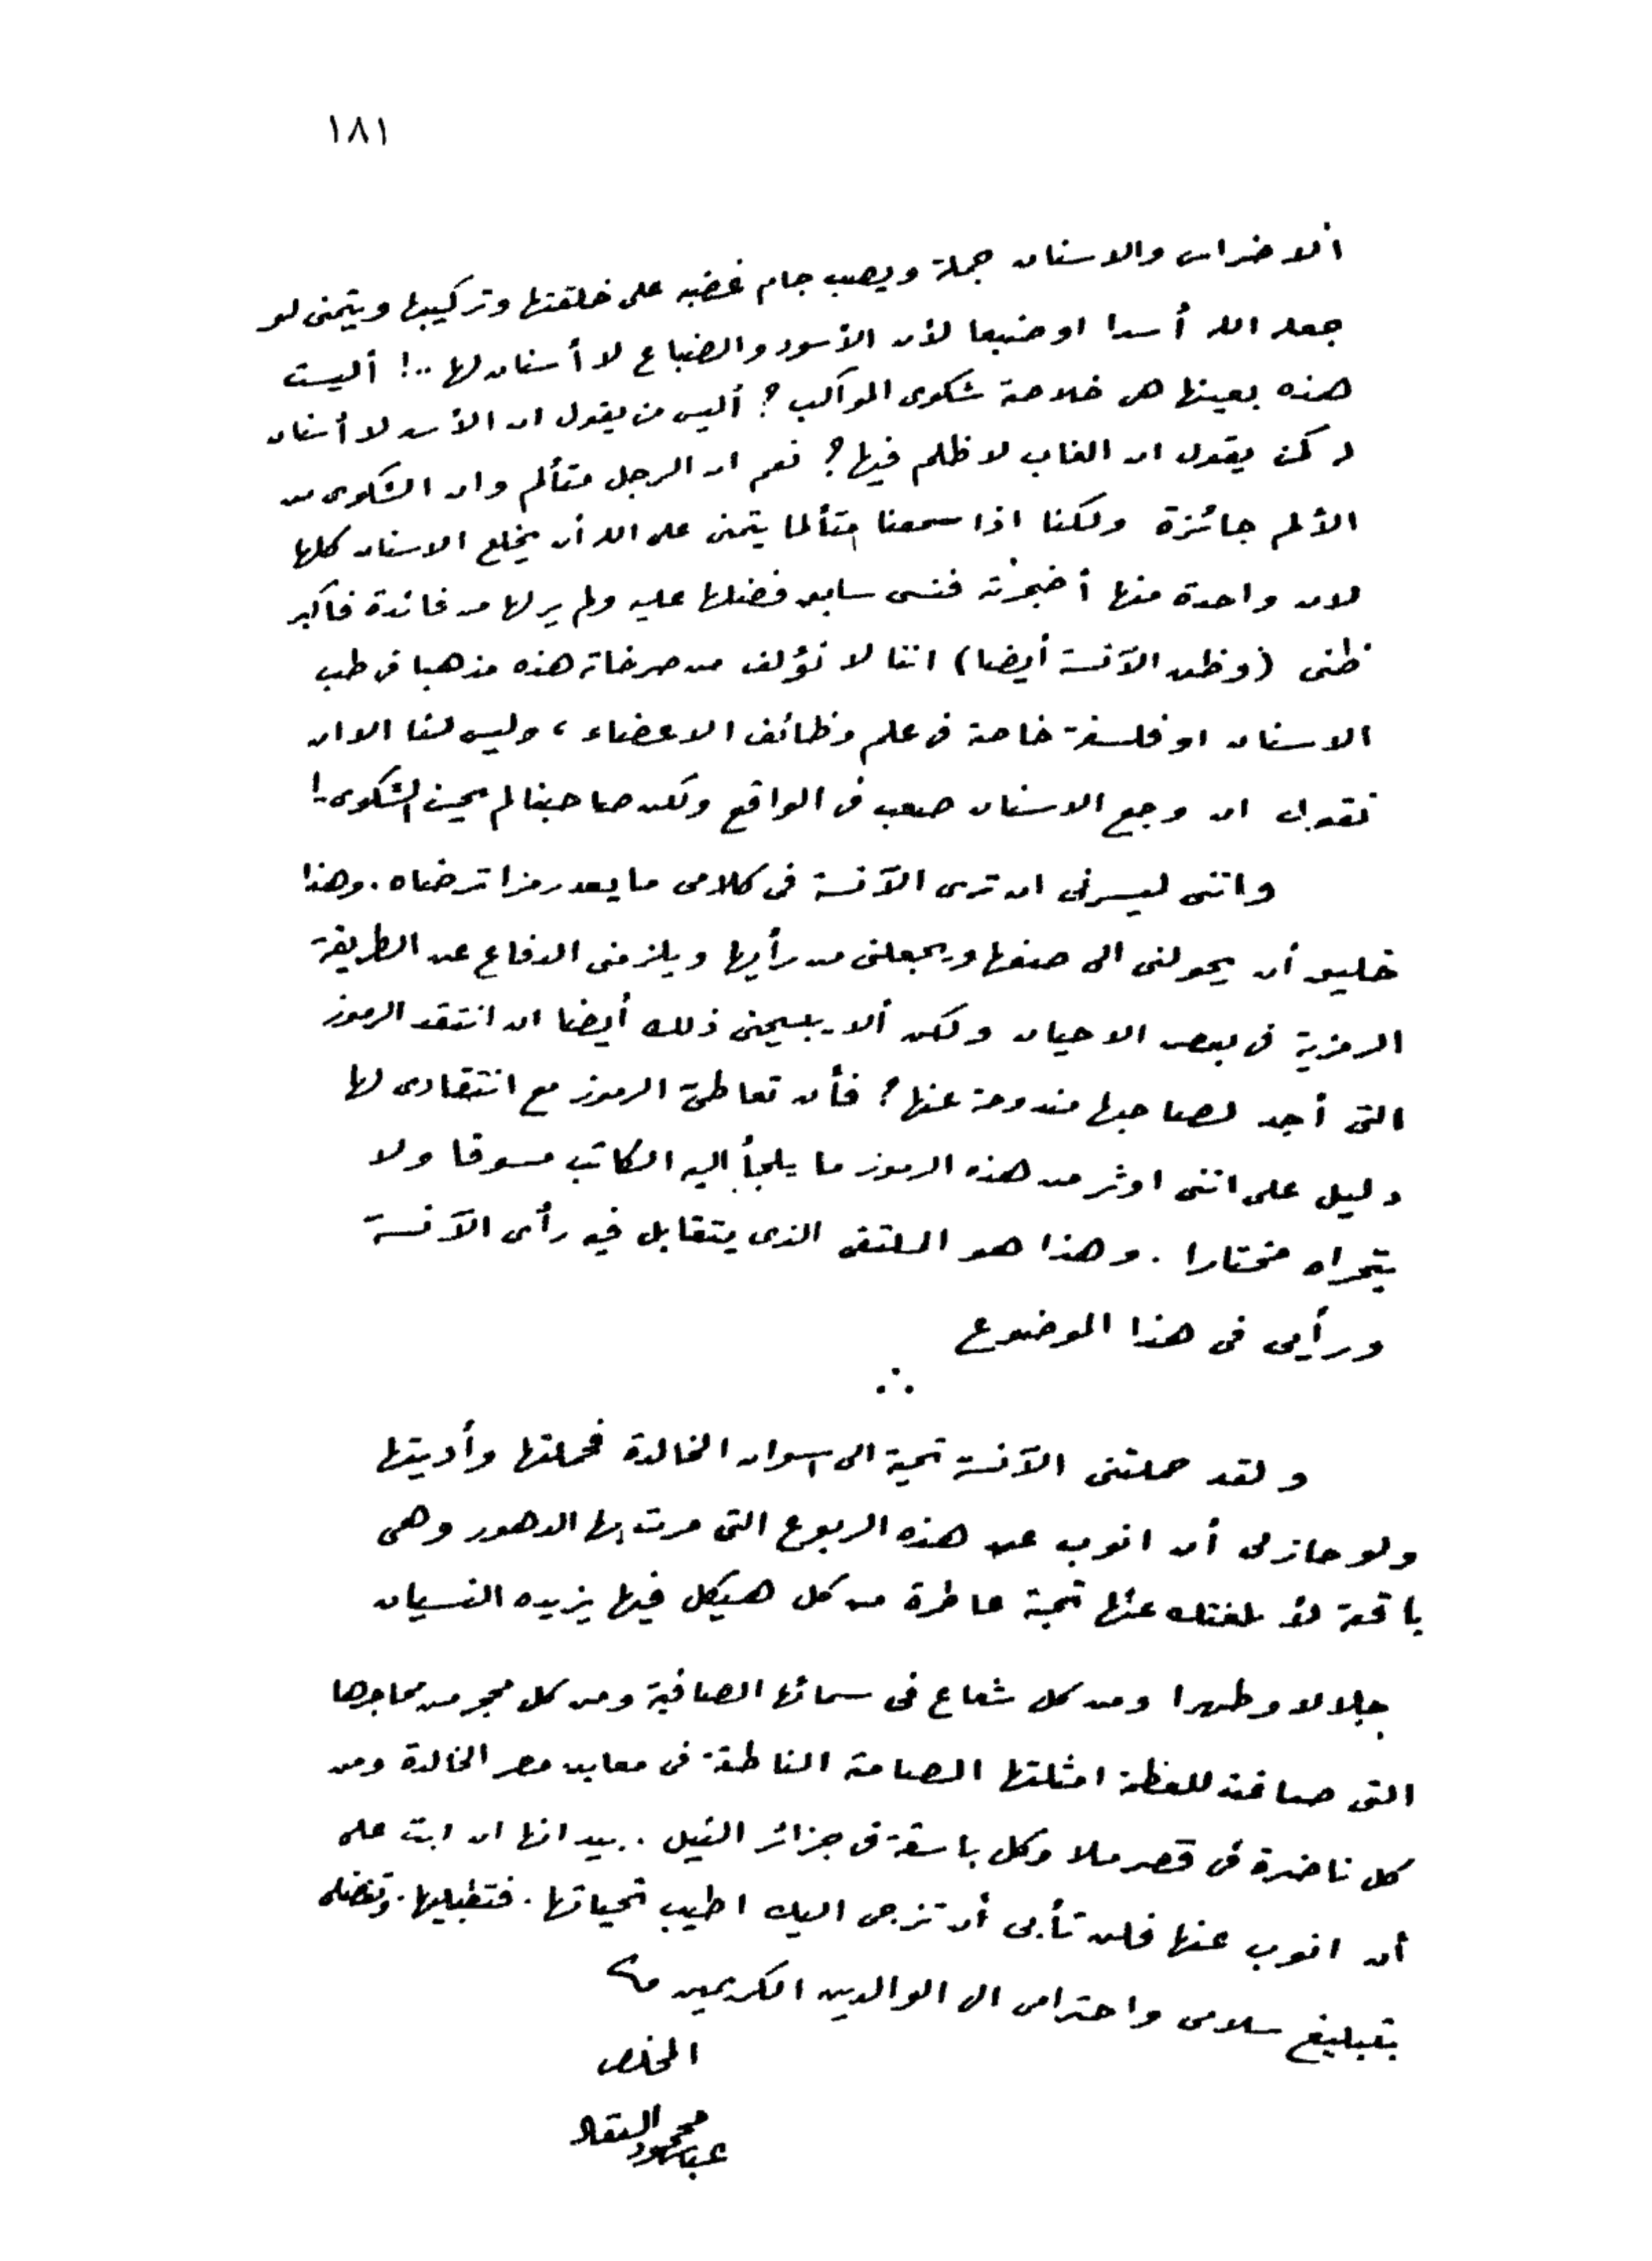 ١٨١
الاضراس والاسنان جملة ويصب جام غضبه على خلقتها وتركيبها ويتمنى لو
جعله الله أسدا او ضبعا لأن الأسود والضباع لا أسنان لها ..! أليست
هذه بعينها هى خلاصة شكوى المواكب ؟ أليس من يقول ان الأسد لا أسنان
له كمن يقول ان الغاب لا ظلم فيها ؟ نعم ان الرجل متألم وان الشكوى من
الألم جائزة ولكنا اذا سمعنا متألما يتمنى على الله أن يخلع الاسنان كلها
لان واحدة منها أضجرته فنسى سابق فضلها عليه ولم ير لها من فائدة فاكبر
ظنى (وظن الآنسة أيضا) اننا لا نؤلف من صرخاته هذه مذهبا فى طب
الاسنان او فلسفة خاصة فى علم وظائف الاعضاء ، وليس لنا الا ان
نقول ان وجع الاسنان صعب فى الواقع ولكن صاحبنا لم يحسن الشكوى .!
واننى ليسرنى ان ترى الآنسة فى كلامى ما يعد رمزا ترضاه . وهذا
خليق أن يحولنى الى صفها ويجعلنى من رأيها ويلزمنى الدفاع عن الطريقة
الرمزية فى بعض الاحيان ولكن ألا يبيحنى ذلك أيضا ان انتقد الرموز
التى أجد لصاحبها مندوحة عنها ؟ فأن تعاطى الرموز مع انتقادى لها
دليل على اننى اوثر من هذه الرموز ما يلجأ اليه الكاتب مسوقا ولا
يتحراه مختارا . وهذا هو الملتقى الذى يتقابل فيه رأى الآنسة
ورأيى فى هذا الموضوع
∴
ولقد حملتنى الآنسة تحية الى اسوان الخالدة فحملتها وأديتها
ولو جاز لى أن انوب عن هذه الربوع التى مرت بها الدهور وهى
يافعة لأبلغتك عنها تحية عاطرة من كل هيكل فيها يزيده النسيان
جلالا وطهرا ومن كل شعاع فى سمائها الصافية ومن كل محجر من محاجرها
التى صاغت للعظمة امثلتها الصامتة الناطقة فى معابد مصر الخالدة ومن
كل ناضرة فى قصر ملا وكل باسقة فى جزائر النيل . بيد انها ان ابت على
أن انوب عنها فلن تأبى أن تزجى اليك اطيب تحياتها . فتقبليها . وتفضلى
بتبليغ سلامى واحترامى الى الوالدين الكريمين
المخلص
عباس محمود العقاد